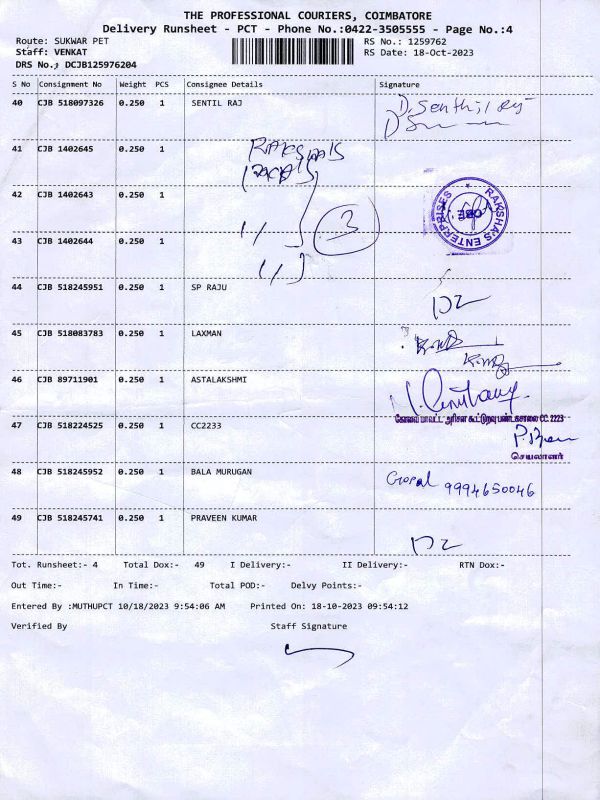 THE PROFESSIONAL COURIERS, COIMBATORE
Delivery Runsheet - PCT - Phone No.:0422-3505555 - Page No.:4
Route: SUKWAR PET RS No.: 1259762
Staff: VENKAT RS Date: 18-Oct-2023
DRS No.: DCJB125976204
S No Consignment No Weight PCS Consignee Details Signature
40 CJB 518097326 0.250 1 SENTIL RAJ D. Senthil Raj
41 CJB 1402645 0.250 1 RAKSHA'S
42 CJB 1402643 0.250 1
RAKSHA'S ENTERPRISES
CBE
3
43 CJB 1402644 0.250 1
44 CJB 518245951 0.250 1 SP RAJU
45 CJB 518083783 0.250 1 LAXMAN
46 CJB 89711901 0.250 1 ASTALAKSHMI
கோவை மாவட்ட அரிசன கூட்டுறவு பண்டகசாலை CC. 2223
47 CJB 518224525 0.250 1 CC2233
செயலாளர்
48 CJB 518245952 0.250 1 BALA MURUGAN Gopal 9994650046
49 CJB 518245741 0.250 1 PRAVEEN KUMAR
Tot. Runsheet:- 4 Total Dox:- 49 I Delivery:- II Delivery:- RTN Dox:-
Out Time:- In Time:- Total POD:- Delvy Points:-
Entered By :MUTHUPCT 10/18/2023 9:54:06 AM Printed On: 18-10-2023 09:54:12
Verified By Staff Signature